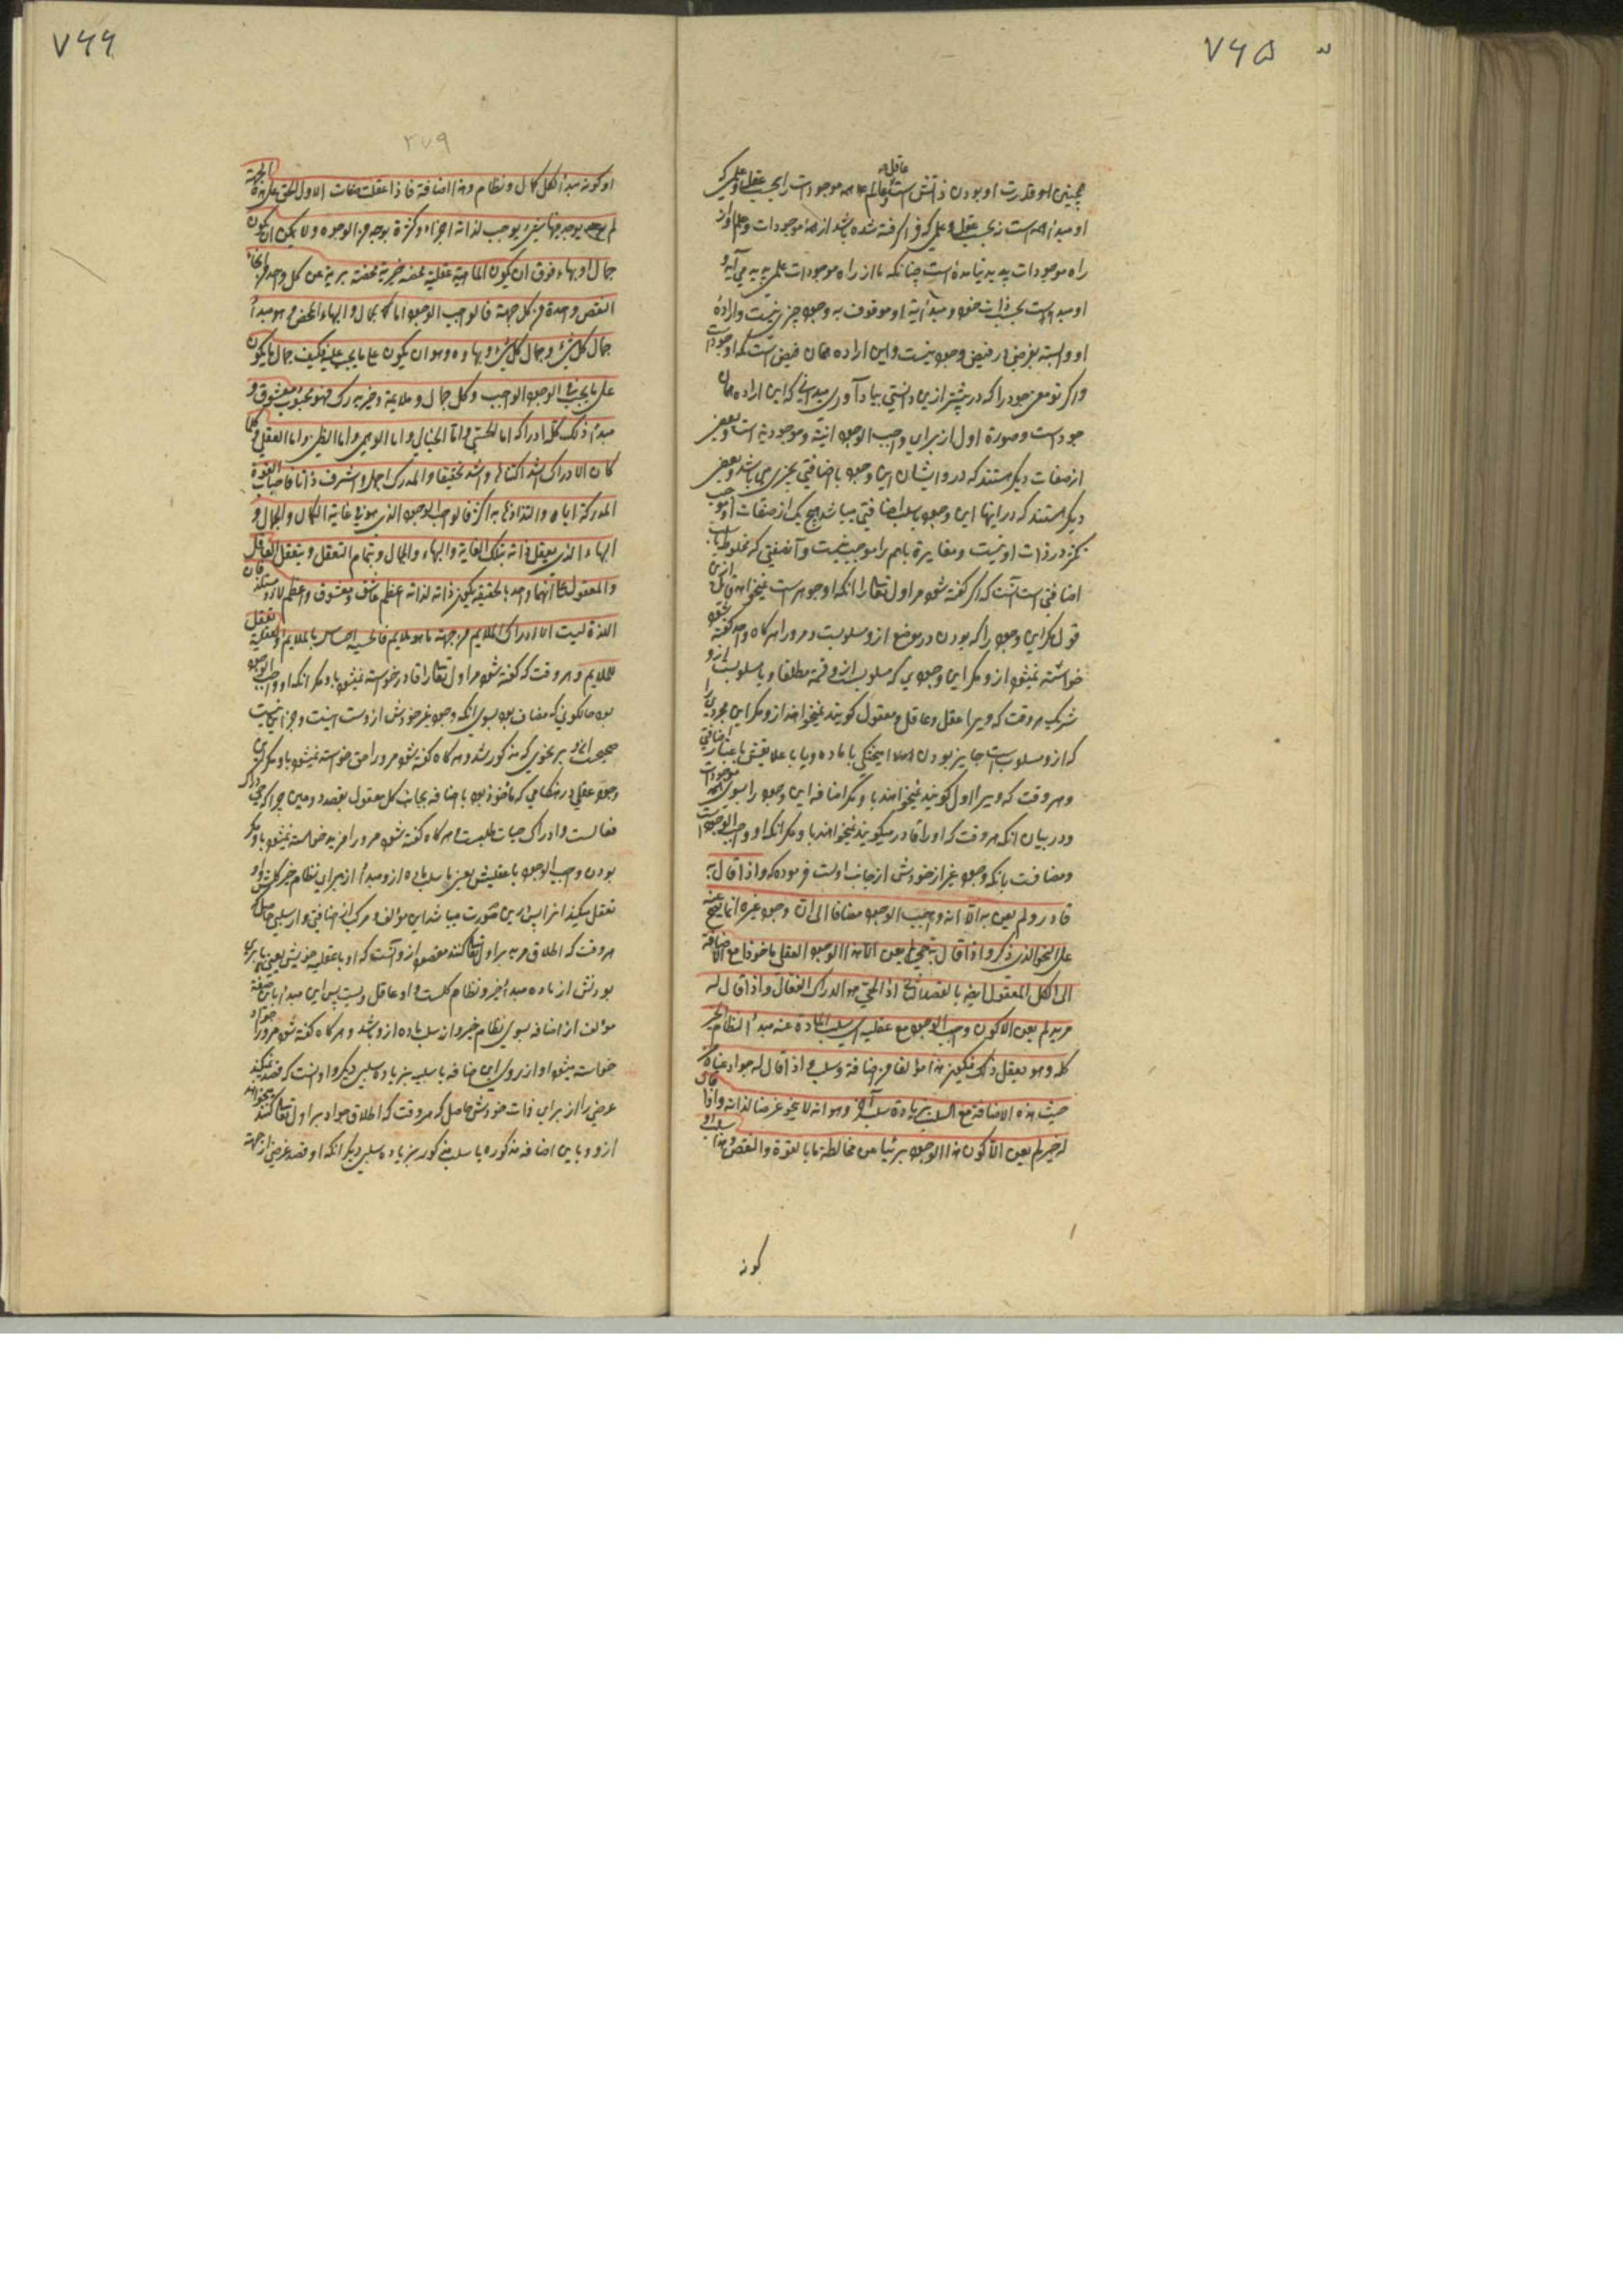 ۷۶۵
همچنین او قدرت او بودن ذاتش است عاقل و عالم همه موجودات را بحسب عقلی و علمی که
او مبدأ همه است نه بحسب عقلی و علمی که فرا گرفته شده باشد از همه موجودات و علم او از
راه موجودات پدید نیامده است چنانکه ما از راه موجودات علم پدید می آید و
او مبدأ است بحسب ذات خود و مبدأیة او موقوف به وجود چیزی نیست و اراده
او وابسته بغرض در فیض وجود نیست و این اراده همان فیض است که او جود است
و اگر تو معنی جود را که در پیشتر ازین دانستی بیاد آوری میدانی که این اراده همان
جود است و صورة اول از برای واجب الوجود انیّة و موجودیة است و بعضی
از صفات دیگر هستند که در ایشان این وجود با اضافتی بچیزی می باشد و بعضی
دیگر هستند که در اینها این وجود با سلب اضافتی میباشد و هیچ یک از صفات او موجب
تکثر در ذات او نیست و مغایرة با هم را موجب نیست و آنصفتی که مخلوط با سلب
اضافتی است آنست که اگر گفته شود مر اول تعالی را انکه او جوهر است نمیخواهد قائل ازین
قول مگر این وجود را که بودن در موضع ازو مسلوبست و مر او را هر گاه واحد گفته شود
خواسته نمیشود ازو مگر این وجودی که مسلوب است ازو قسمة مطلقا و یا مسلوبست ازو
شریک و هر وقت که ویرا عقل و عاقل و معقول گویند نمیخواهند ازو مگر این مجردی را
که ازو مسلوب است جایز بودن آمیختگی با ماده و یا با علایقش با اعتبار اضافتی
و هر وقت که ویرا اول گویند نمیخواهند باو مگر اضافه این وجود را بسوی همه موجودات
و در بیان انکه هر وقت که او را قادر میگویند نمیخواهند باو مگر انکه او واجب الوجود است
و مضافست بانکه وجود غیر از خودش از جانب اوست فرموده که و اذا قال له
قادر و لم یعن به الا انه واجب الوجود مضافا الی ان وجود غیره انما یصح عنه
علی النحو الذی ذکر و اذا قال له حی لم یعن الا هذا الوجود العقلی ماخوذا مع الاضافة
الی الکل المعقول ایضا بالقصد الثانی اذ الحی هو الدراک الفعال و اذا قال له
مرید لم یعن الا کون واجب الوجود مع عقلیته ای سلب المادة عنه مبدأ لنظام الخیر
کله و هو یعقل ذلک فیکون هذا مؤلفا من اضافة و سلب و اذا قال له جواد عناه من
حیث هذه الاضافة مع السلب بزیادة سلب آخر و هو انه لا ینحو غرضا لذاته و اذا قال
له خیر لم یعن الا کون هذا الوجود مبرئا من مخالطة ما بالقوة و النقص و هذا سلب او
کونه
۷۶۶
۳۷۹
او کونه مبدأ لکل کمال و نظام و هذا اضافة فاذا عقلت صفات الاول الحق علی هذه الجهة
لم یوجد فیها شیء یوجب لذاته اجزاء و کثرة بوجه من الوجوه و لا یمکن ان یکون
جمال او بهاء فوق ان یکون الماهیة عقلیة محضه خیریة محضة بریة عن کل واحد من انحاء
النقص واحدة من کل جهة فالواجب الوجود له الجمال و البهاء المحض و هو مبدأ
جمال کل شیء و جمال کل شیء و بهاوه هو ان یکون علی ما یجب له فکیف جمال ما یکون
علی ما یجب فی الوجود الواجب و کل جمال و ملایمة و خیر مدرک فهو محبوب معشوق و
مبدأ ذلک کله ادراکه اما الحسی و اما الخیالی و اما الوهمی و اما الظنی و اما العقلی و کلما
کان الادراک اشد اکتناها و اشد تحقیقا و المدرک اجمل و اشرف ذاتا فاحباب القوة
المدرکة ایاه و التذاذها به اکثر فالواجب الوجود الذی هو فی غایة الکمال و الجمال و
البهاء الذی یعقل ذاته بتلک الغایة و البهاء و الجمال و بتمام التعقل و یتعقل العاقل
و المعقول علی انهما واحد بالحقیقة یکون ذاته لذاته اعظم عاشق و معشوق و اعظم لاذ و ملتذ فان
اللذة لیست الا ادراک الملایم من جهة ما هو ملایم فالحسیة احساس بالملایم و العقلیة تعقل
للملایم و هر وقت که گفته شود مر اول تعالی را قادر خواسته نمیشود باو مگر انکه او واجب الوجود
بود حالکونی که مضاف بود بسوی انکه وجود غیر خودش ازوست اینست و جز این نیست
صحیحست ازو بر نحوی که مذکور شد و هر گاه گفته شود مر او را حی خواسته نمیشود باو مگر این
وجود عقلی در هنگامی که ماخوذ بود با اضافه بجانب کل معقول بقصد دومین چرا که حی دراک
فعالست و ادراک حیات طلبست و هر گاه گفته شود مر او را مرید خواسته نمیشود باو مگر
بودن واجب الوجود با عقلیتش یعنی با سلب ماده ازو مبدأ از برای نظام خیر کلش و او
تعقل میکند انرا پس درین صورت میباشد این مؤلف و مرکب از اضافتی و از سلبی حاصل که
هر وقت که اطلاق مرید بر اول تعالی کنند مقصود ازو آنست که او با عقلیه خویش یعنی با بری
بودنش از ماده مبدأ خیر و نظام کلست و او عاقل ویست پس این مبدأ باین صفة
مؤلف از اضافه بسوی نظام خیر و از سلب ماده ازو باشد و هر گاه گفته شود مر او را جواد
خواسته میشود او از روی این اضافه با سلب بزیادة سلبی دیگر و او انست که قصد نمیکند
غرضی را از برای ذات خودش حاصل که هر وقت که اطلاق جواد بر اول تعالی کنند میخواهند
ازو و باین اضافه مذکوره با سلب مذکور بزیاده سلبی دیگر انکه او قصد غرضی از جهة